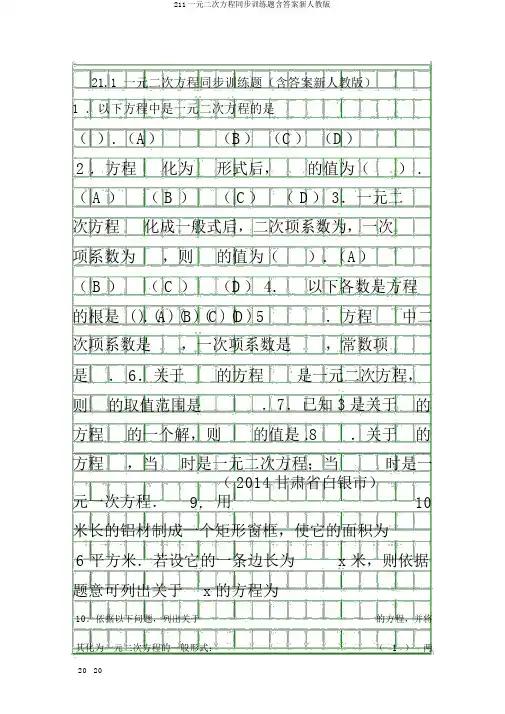 211一元二次方程同步训练题含答案新人教版
21.1 一元二次方程同步训练题（含答案新人教版）
1 . 以下方程中是一元二次方程的是
( ).（A） （B） （C） （D）
2 . 方程 化为 形式后， 的值为（ ）.
（A） （B） （C） （D） 3. 一元二
次方程 化成一般式后，二次项系数为，一次
项系数为 ，则 的值为（ ）.（A）
（B） （C） （D） 4. 以下各数是方程
的根是 ().(A) (B) (C) (D)5 . 方程 中二
次项系数是 ，一次项系数是 ，常数项
是 . 6. 关于 的方程 是一元二次方程，
则 的取值范围是 . 7. 已知 3 是关于 的
方程 的一个解，则 的值是 .8 . 关于 的
方程 ，当 时是一元二次方程；当 时是一
元一次方程． 9. （2014 甘肃省白银市）用 10
米长的铝材制成一个矩形窗框，使它的面积为
6 平方米．若设它的一条边长为 x 米，则依据
题意可列出关于 x 的方程为
10. 依据以下问题，列出关于 的方程，并将
其化为一元二次方程的一般形式. （ 1 ） 两
20 20